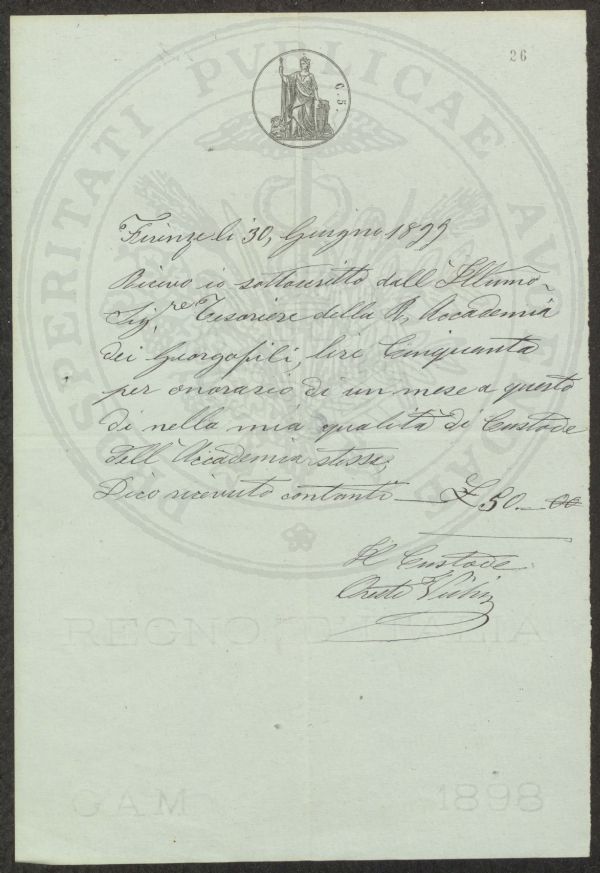 26
C. 5.
PROSPERITATI PVBLICAE AVGENDAE
Firenze li 30, Giugno 1899
Ricevo io sottoscritto dall' Illumo-
Sig.re Tesoriere della R. Accademia
dei Georgofili, lire Cinquanta
per onorario di un mese a questo
dì nella mia qualità di Custode
dell' Accademia stessa,
Dico ricevuto contanti £ 50.-00
Il Custode
Oreste
REGNO D'ITALIA
GAM 1898